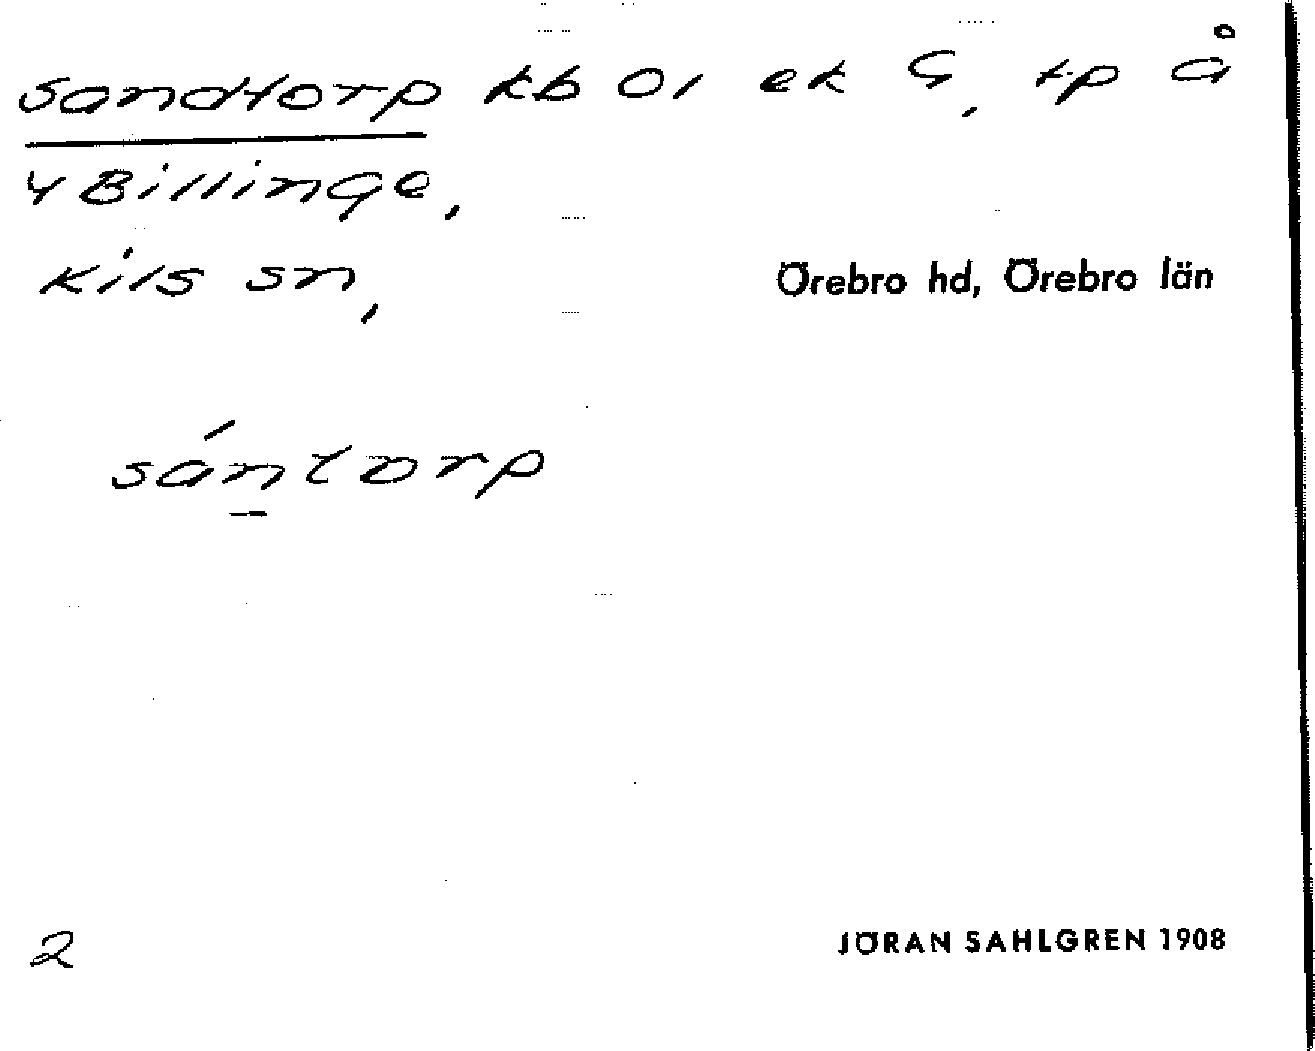 Sandtorp kb 01 ek G, tp å
4 Billinge,
Kils sn,
Örebro hd, Örebro län
sántorp
2
JÖRAN SAHLGREN 1908